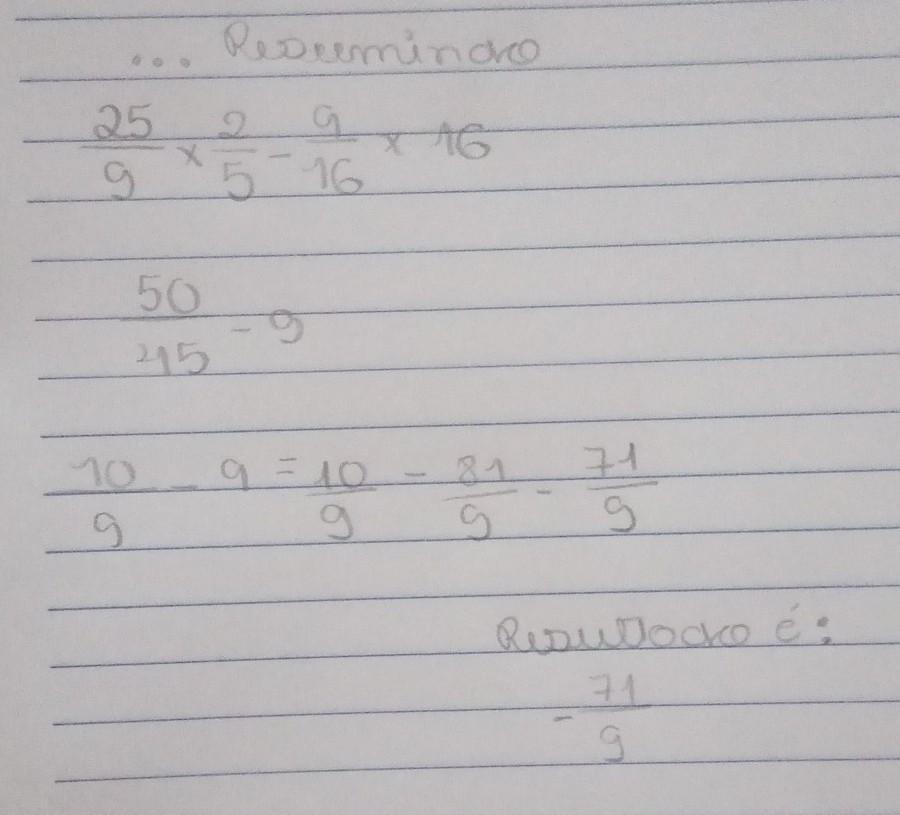 ... Resumindo
25/9 × 2/5 - 9/16 × 16
50/45 - 9
10/9 - 9 = 10/9 - 81/9 - 71/9
Resultado é:
- 71/9